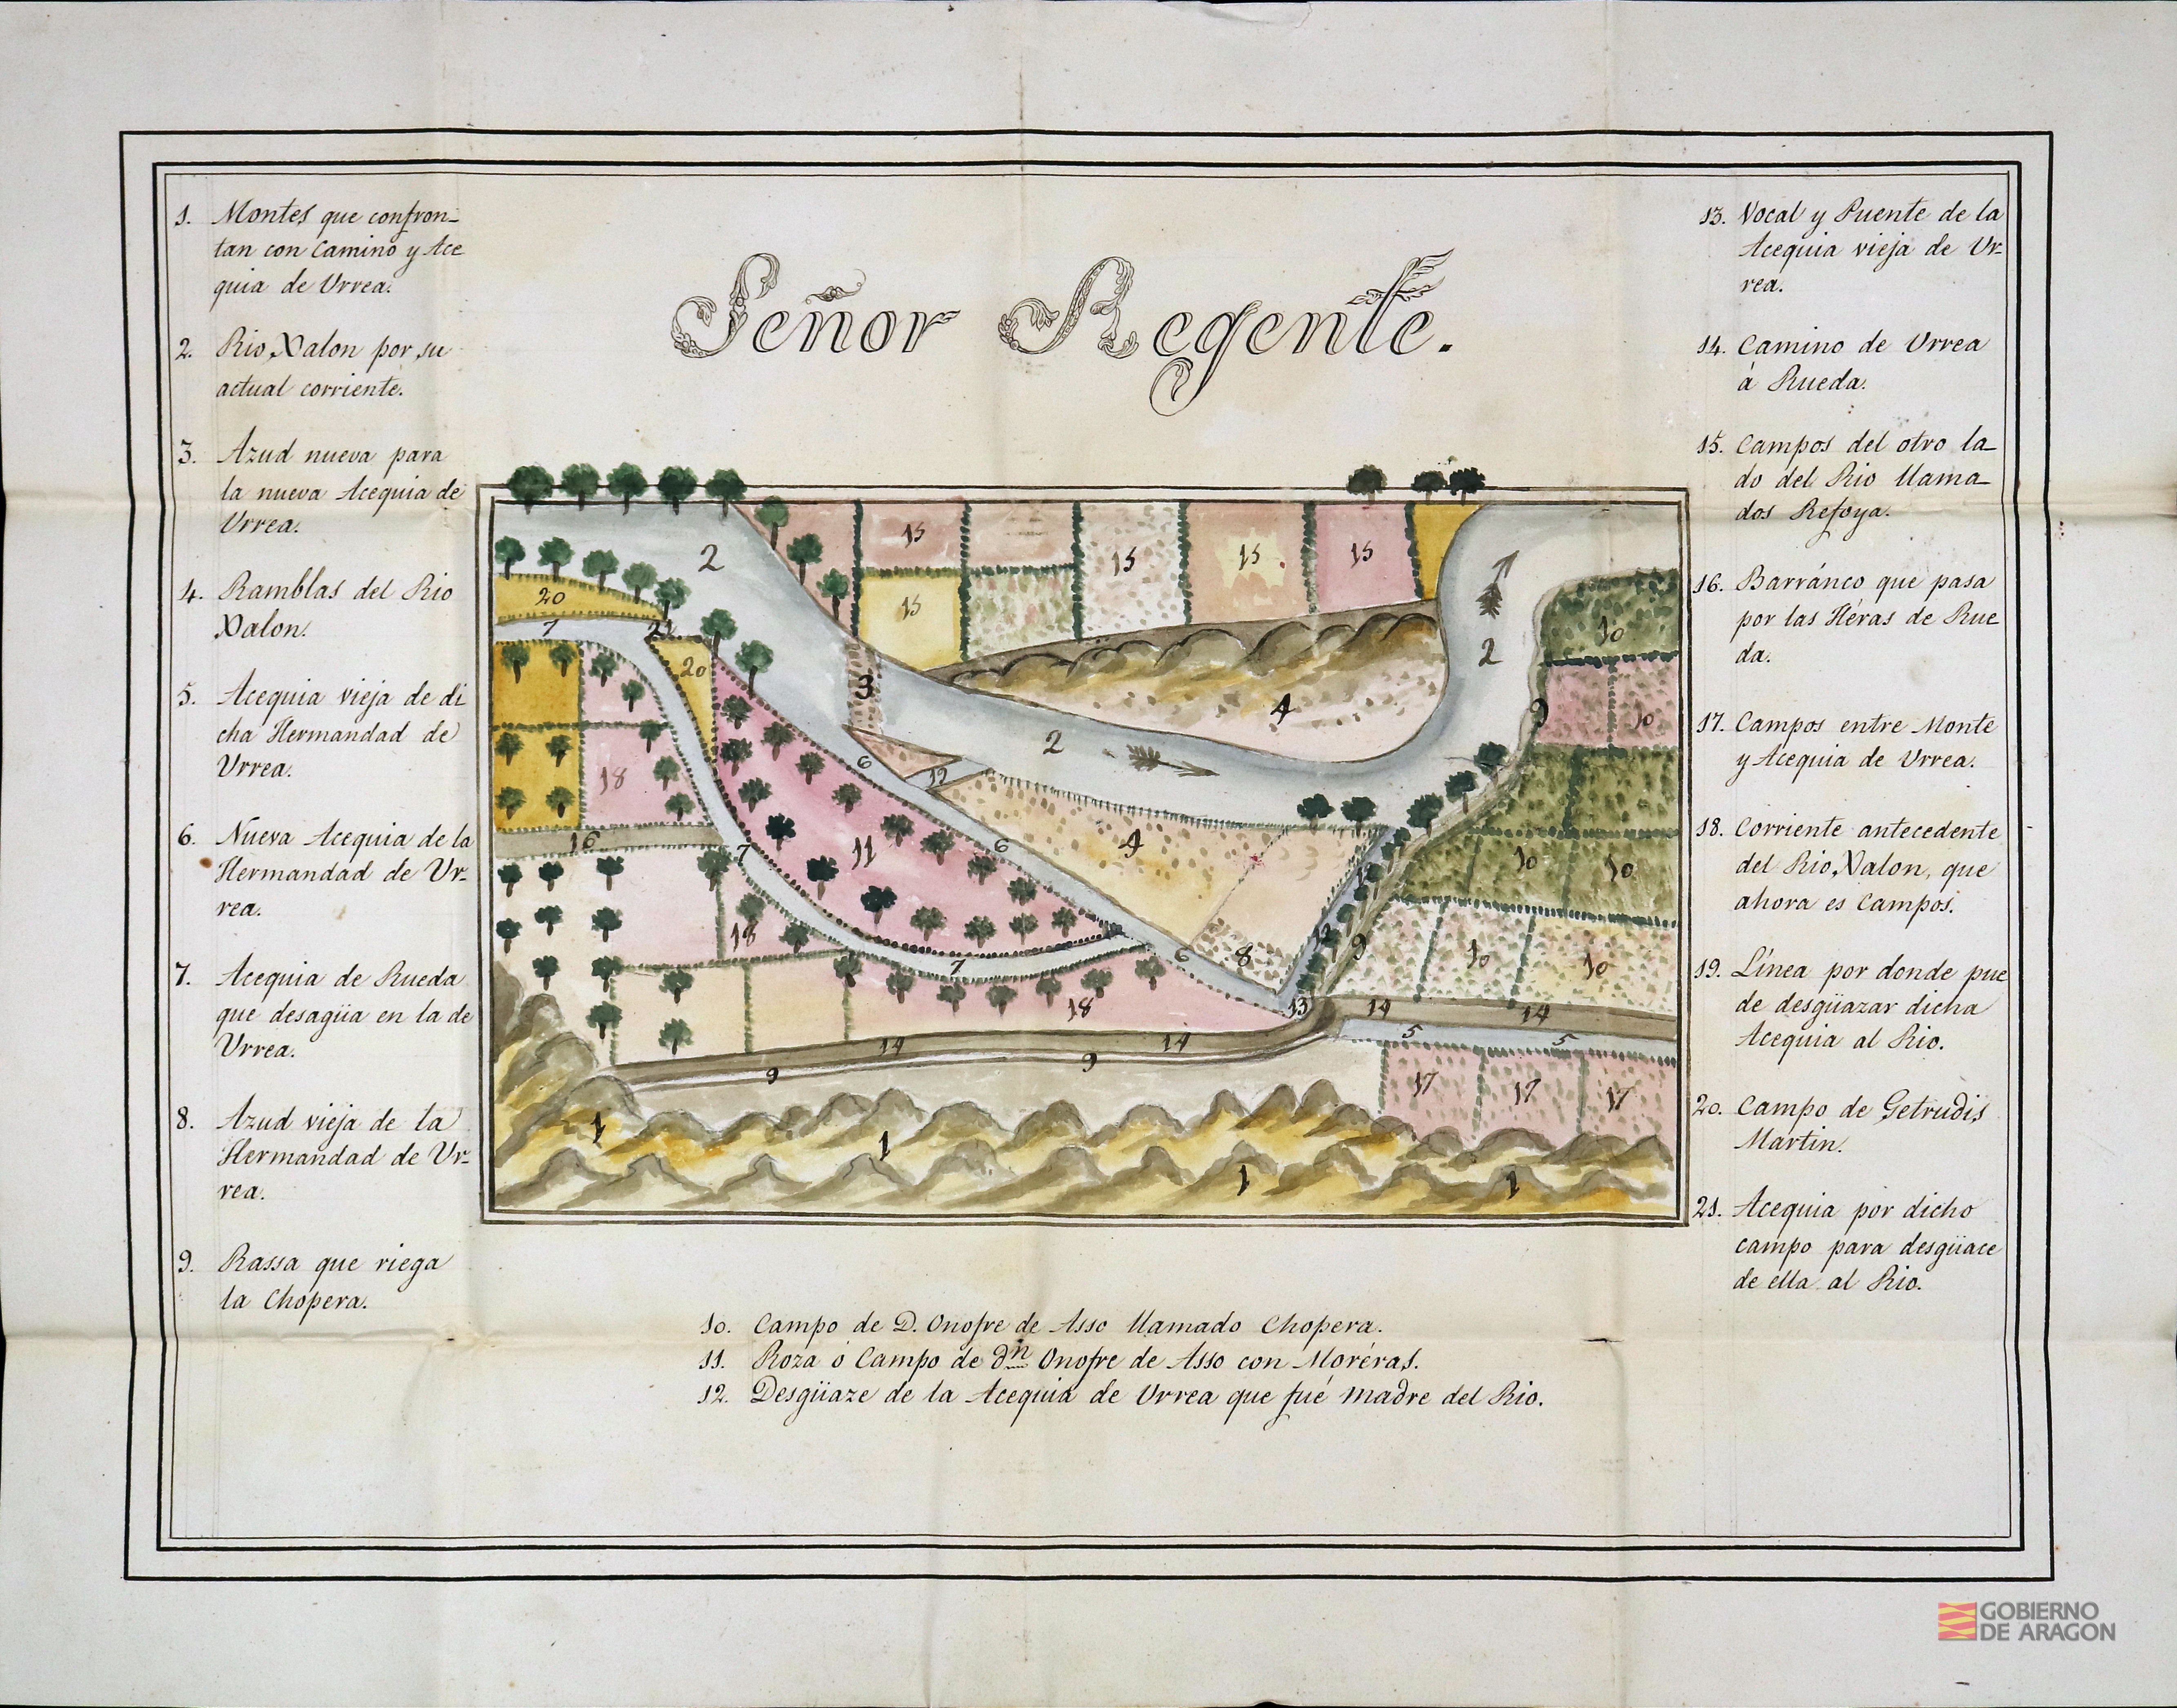 Señor Regente.
1. Montes que confron-
tan con Camino y Ace
quia de Urrea.
2. Rio Xalon por su
actual corriente.
3. Azud nueva para
la nueva Acequia de
Urrea.
4. Ramblas del Rio
Xalon.
5. Acequia vieja de di
cha Hermandad de
Urrea.
6. Nueva Acequia de la
Hermandad de Ur-
rea.
7. Acequia de Rueda
que desagüa en la de
Urrea.
8. Azud vieja de la
Hermandad de Ur-
rea.
9. Rassa que riega
la Chopera.
2
15
15
15
15
15
20
7
21
20
3
2
4
2
10
10
9
18
6
12
16
7
11
6
4
10
10
12
18
7
6
8
12
9
10
10
18
13
14
14
14
14
5
5
9
9
17
17
17
1
1
1
1
10. Campo de D. Onofre de Asso llamado Chopera.
11. Roza ó Campo de Dn Onofre de Asso con Moréras.
12. Desgüaze de la Acequia de Urrea que fué madre del Rio.
13. Vocal y Puente de la
Acequia vieja de Ur-
rea.
14. Camino de Urrea
á Rueda.
15. Campos del otro la-
do del Rio llama-
dos Refoya.
16. Barránco que pasa
por las Héras de Rue
da.
17. Campos entre Monte
y Acequia de Urrea.
18. Corriente antecedente
del Rio Xalon, que
ahora es Campos.
19. Línea por donde pue
de desgüazar dicha
Acequia al Rio.
20. Campo de Getrudis
Martin.
21. Acequia por dicho
campo para desgüace
de ella al Rio.
GOBIERNO
DE ARAGON